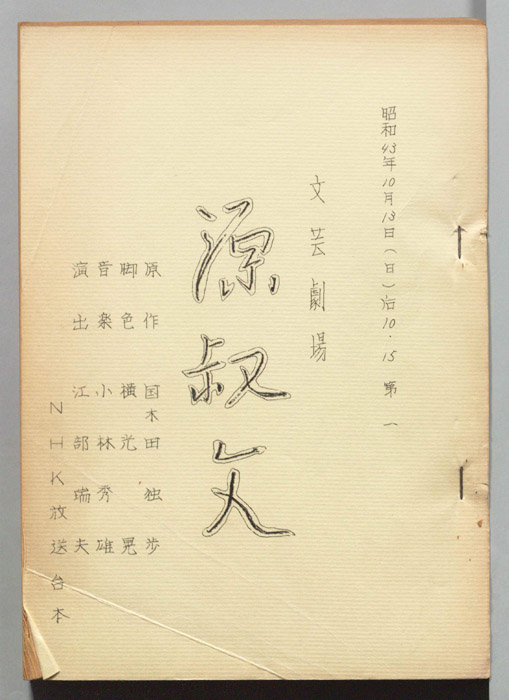 昭和43年10月13日(日)后10.15 第一
文芸劇場
源叔父
原作 国木田独歩
脚色 横光晃
音楽 小林秀雄
演出 江部瑞夫
NHK放送台本